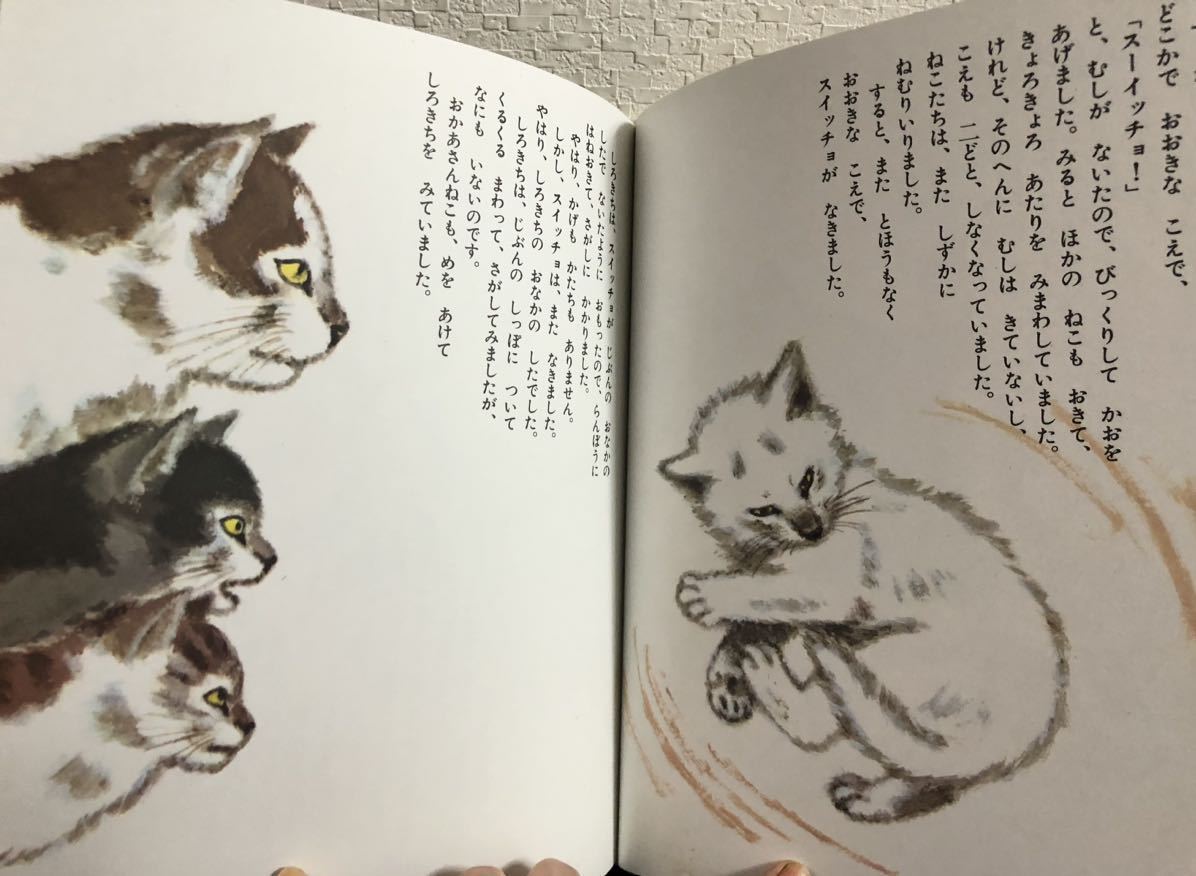 どこかで　おおきな　こえで、
「スーイッチョ！」
と、むしが　ないたので、びっくりして　かおを
あげました。みると　ほかの　ねこも　おきて、
きょろきょろ　あたりを　みまわしていました。
けれど、そのへんに　むしは　きていないし、
こえも　二どと、しなくなっていました。
ねこたちは、また　しずかに
ねむりいりました。
すると、また　とほうもなく
おおきな　こえで、
スイッチョが　なきました。
しろきちは、スイッチョが　じぶんの　おなかの
したで　ないたように　おもったので、らんぼうに
はねおきて、さがしに　かかりました。
やはり、かげも　かたちも　ありません。
しかし、スイッチョは、また　なきました。
やはり、しろきちの　おなかの　したでした。
しろきちは、じぶんの　しっぽに　ついて
くるくる　まわって、さがしてみましたが、
なにも　いないのです。
おかあさんねこも、めを　あけて
しろきちを　みていました。